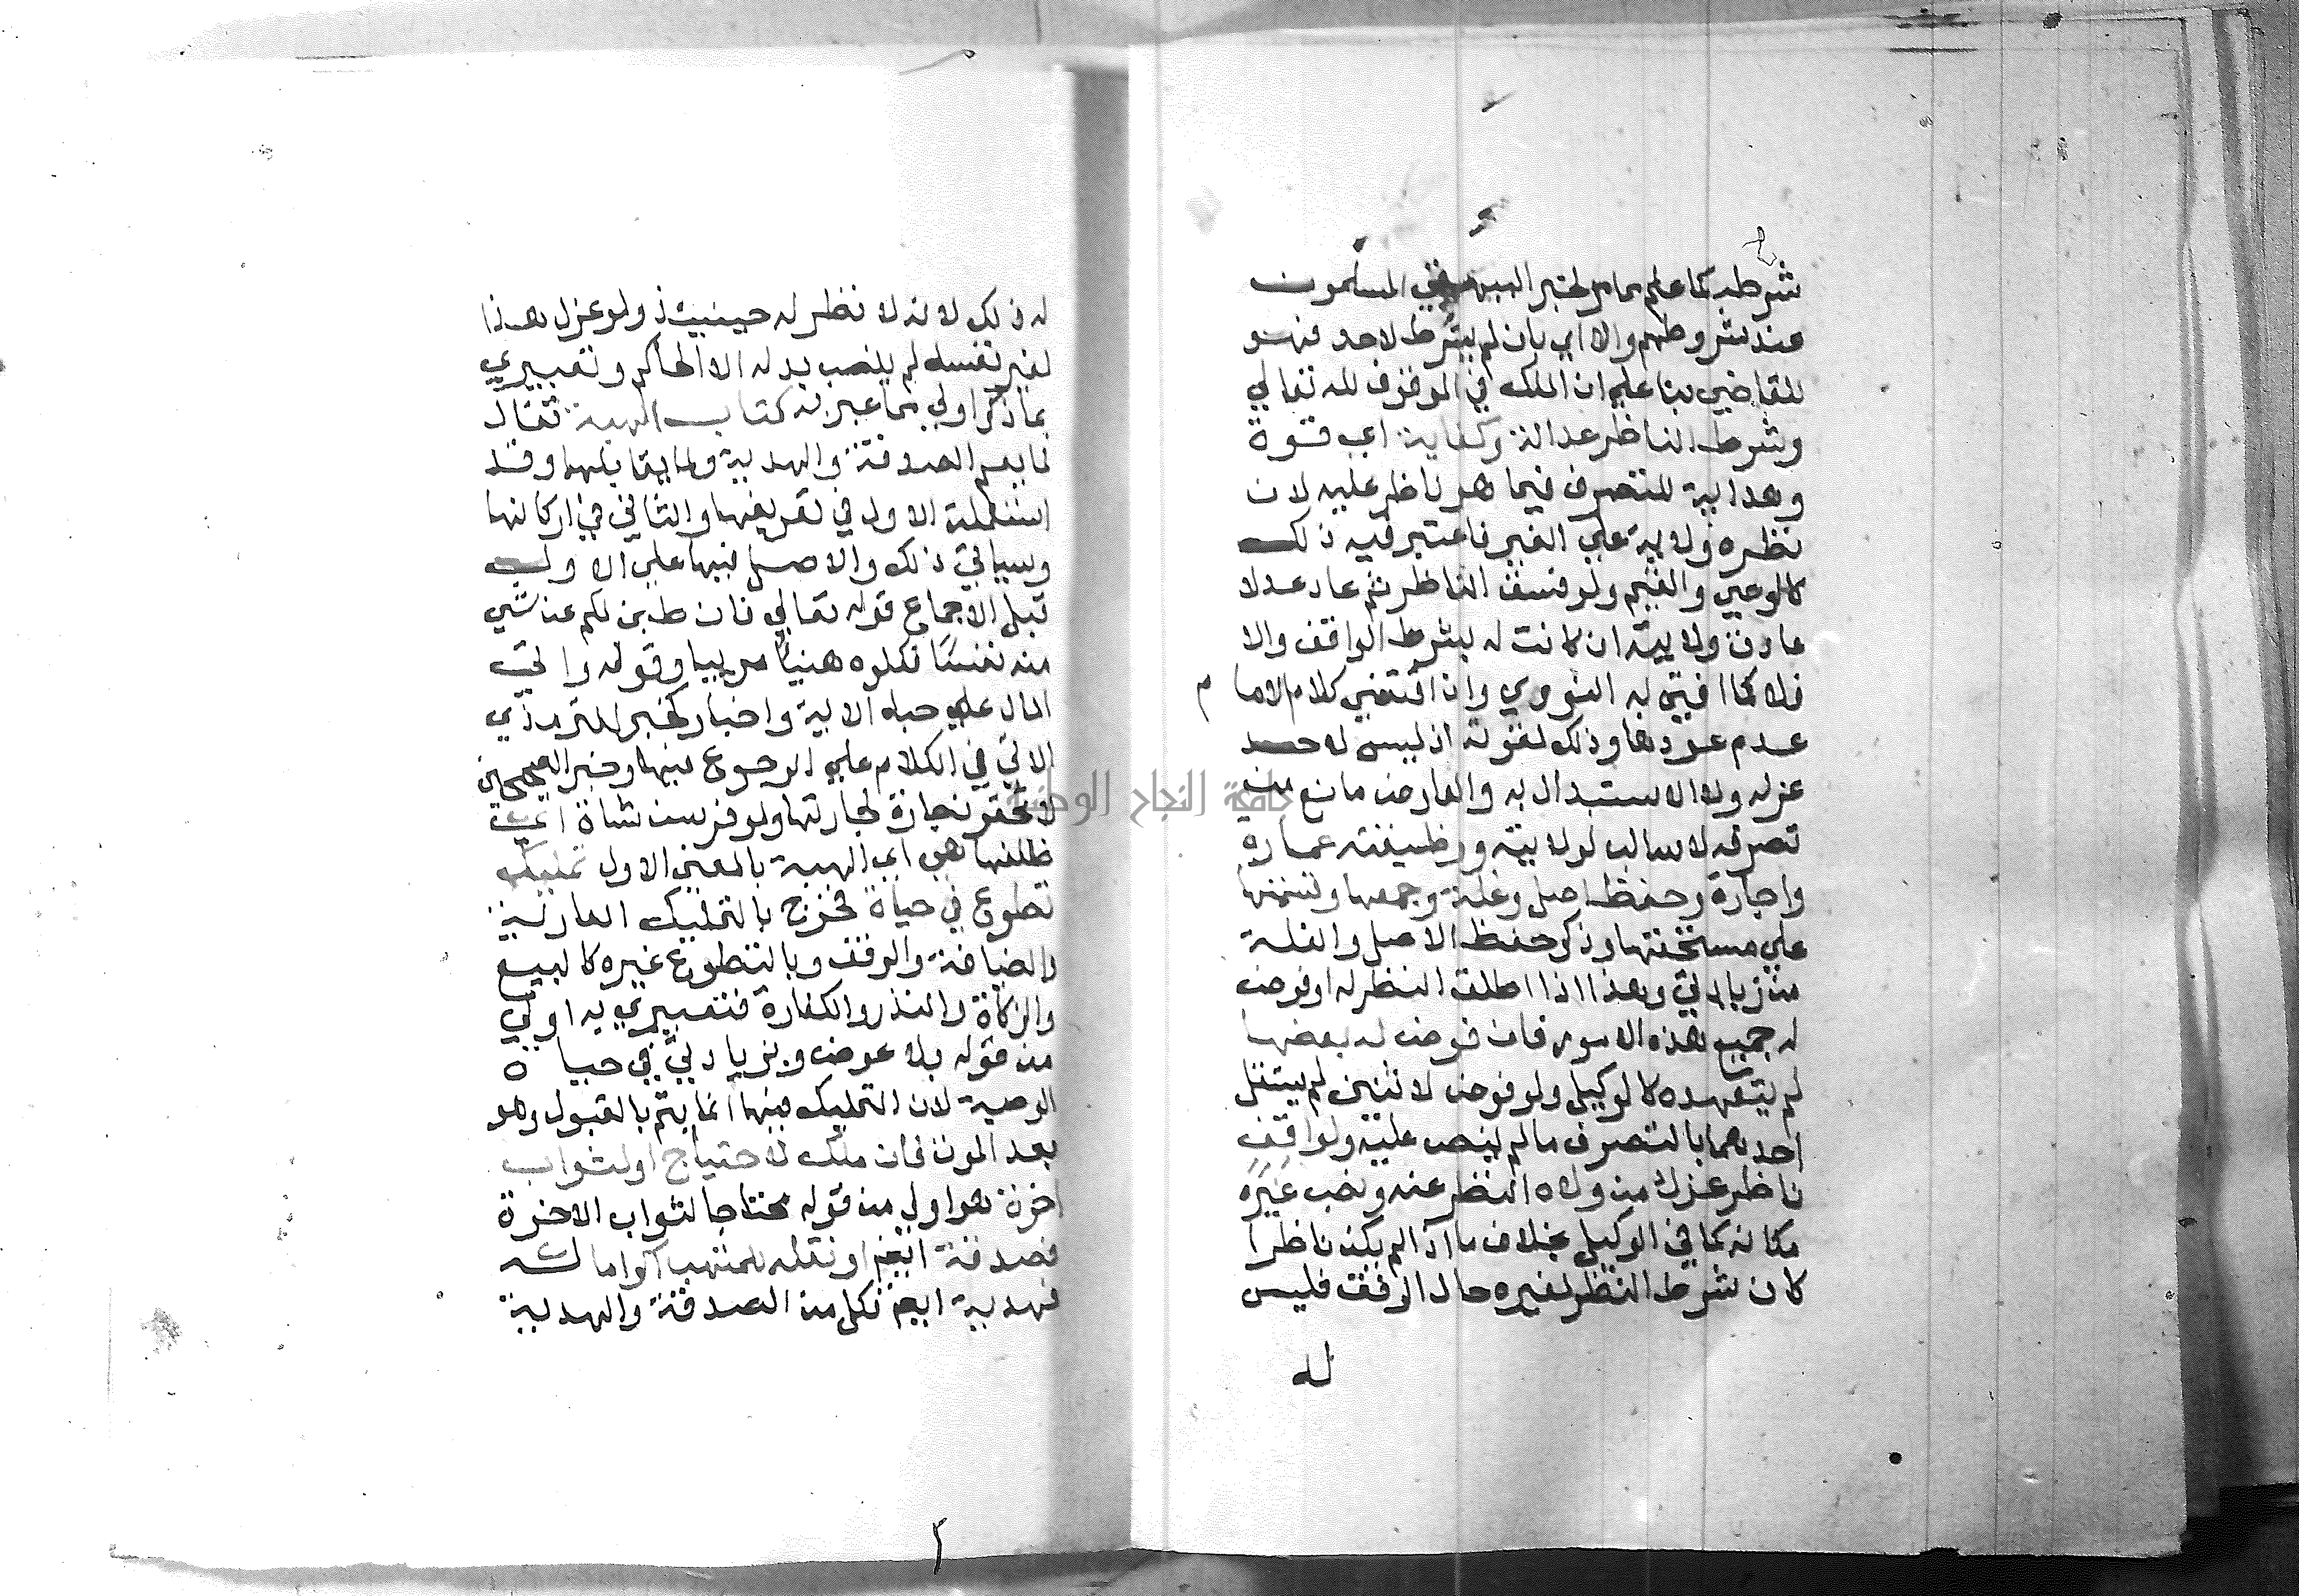 شرطه كما علم مما مر لخبر البيهقي المسلمون
عند شروطهم والا اي بان لم يشرط لاحد فهو
للقاضي بنا علي ان الملك في الموقوف لله تعالي
وشرط الناظر عدالة وكفاية اي قوة
وهداية للتصرف فيما هو ناظر عليه لان
نظره ولاية علي الغير فاعتبر فيه ذلك
كالوصي والقيم ولو فسق الناظر ثم عاد عدلا
عادت ولايته ان كانت له بشرط الواقف والا
فلا كما افتي به النووي وان اقتضي كلام الامام
عدم عودها وذلك لقوته اذ ليس لاحد
عزله ولا الاستبدال به والعارض مانع من
تصرفه لا سالب لولايته ووظيفته عمارة
واجارة وحفظ اصل وغلة وجمعها وقسمتها
علي مستحقتها وذكر حفظ الاصل والغلة
من زيادتي وهذا اذا اطلق النظر له او فوض
له جميع هذه الامور فان فوض له بعضها
لم يتعده كالوكيل ولو فوض لاثنين لم يستقل
احدهما بالتصرف ما لم ينص عليه ولواقف
ناظر عزل من ولاه النظر عنه ونصب غيره
مكانه كما في الوكيل بخلاف ما اذا لم يكن ناظرا
كان شرط النظر لغيره حال الوقف فليس
له
له ذلك لانه لا نظر له حينيئذ ولو عزل هذا
لغير نفسه لم ينصب بدله الا الحاكم وتعبيري
بما ذكر اولي مما عبر به كتاب الهبة تقال
لما يعم الصدقة والهدية ولما يقابلهما وقد
استعملت الاول في تعريفها والثاني في اركانها
وسياتي ذلك والاصل فيها علي الاول
قبل الاجماع قوله تعالي فان طبن لكم عن شي
منه نفسا فكلوه هنيا مريا وقوله واتي
المال علي حبه الاية واخبار كخبر الترمذي
الاتي في الكلام علي الرجوع فيها وخبر الصحيحين
لا تحقرن جارة لجارتها ولو فرسن شاة اي
ظلفها هي اي الهبة بالمعني الاول تمليك
تطوع في حياة فخرج بالتمليك العارية
والضيافة والوقف وبالتطوع غيره كالبيع
والزكاة والنذر والكفارة فتعبيري به اولي
من قوله بلا عوض وبزيادتي في حياة
الوصية لان التمليك فيها انما يتم بالقبول وهو
بعد الموت فان ملك لاحتياج او لثواب
اخرة هو اولي من قوله محتاجا لثواب الاخرة
فصدقة ايضا او نقله للمتهب اكراما له
فهدية ايضا فكل من الصدقة والهدية
جامعة النجاح الوطنية